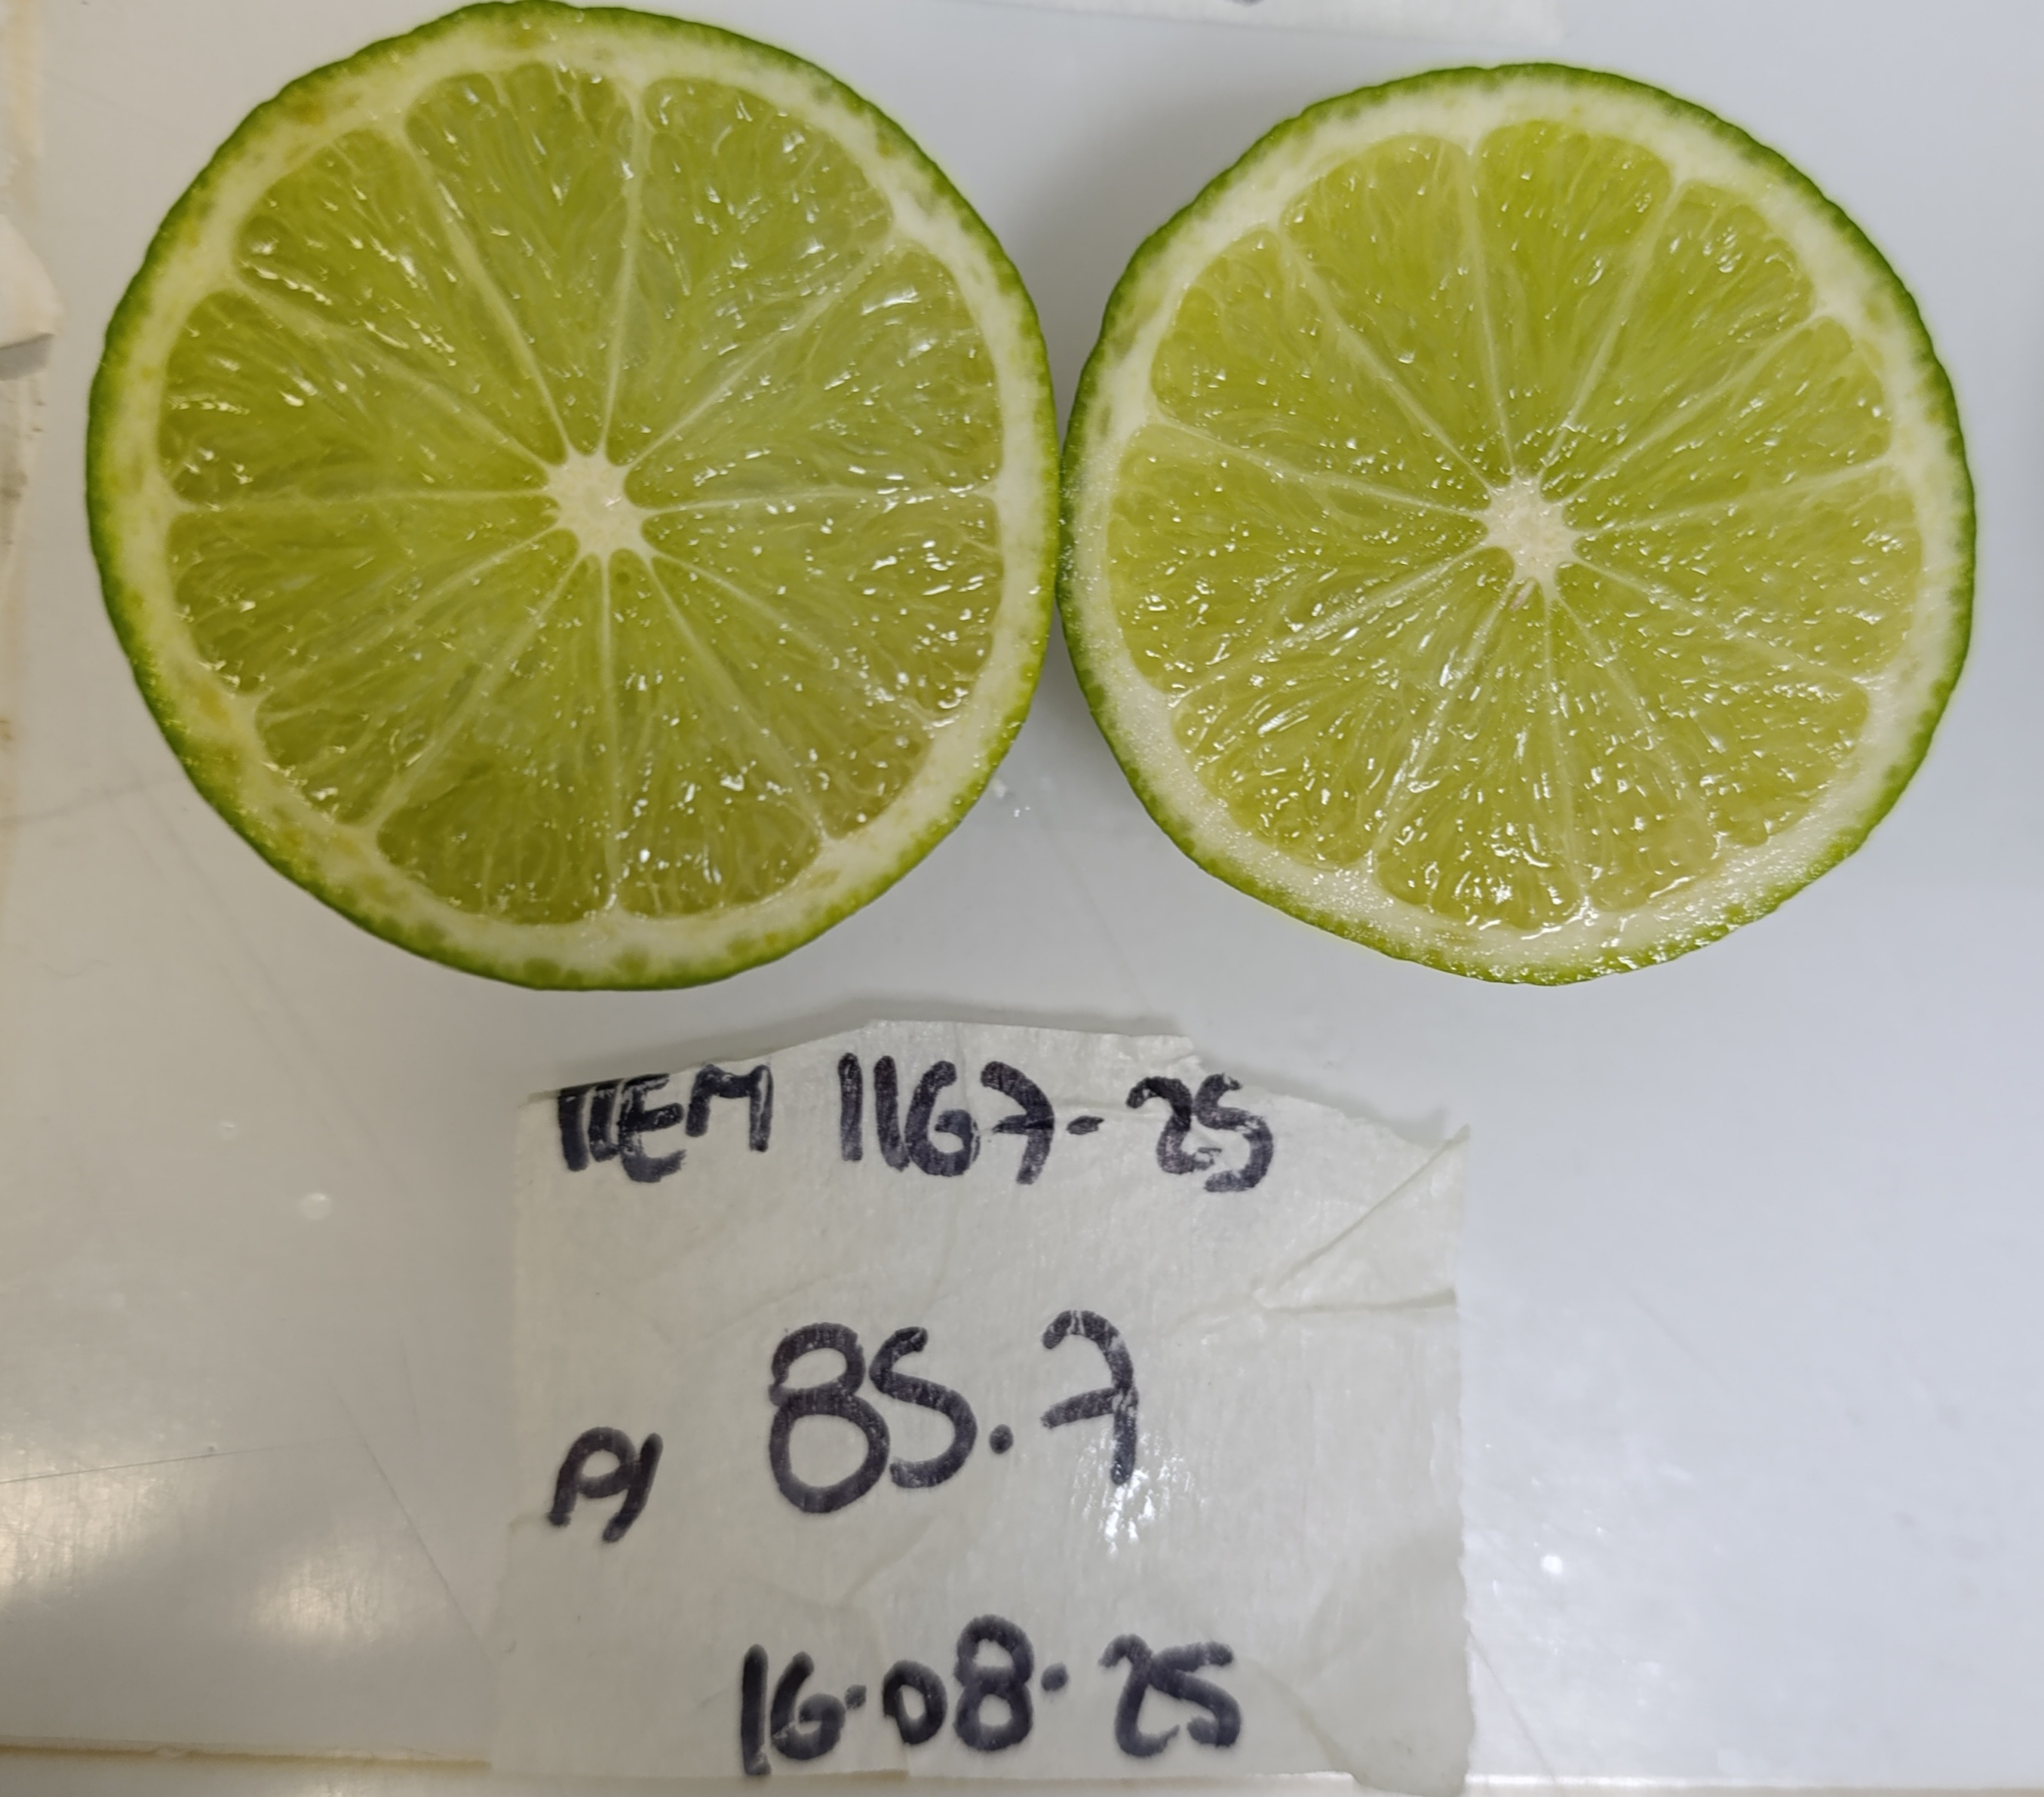 TIEM 1167-25
85.7
A)
16.08.25